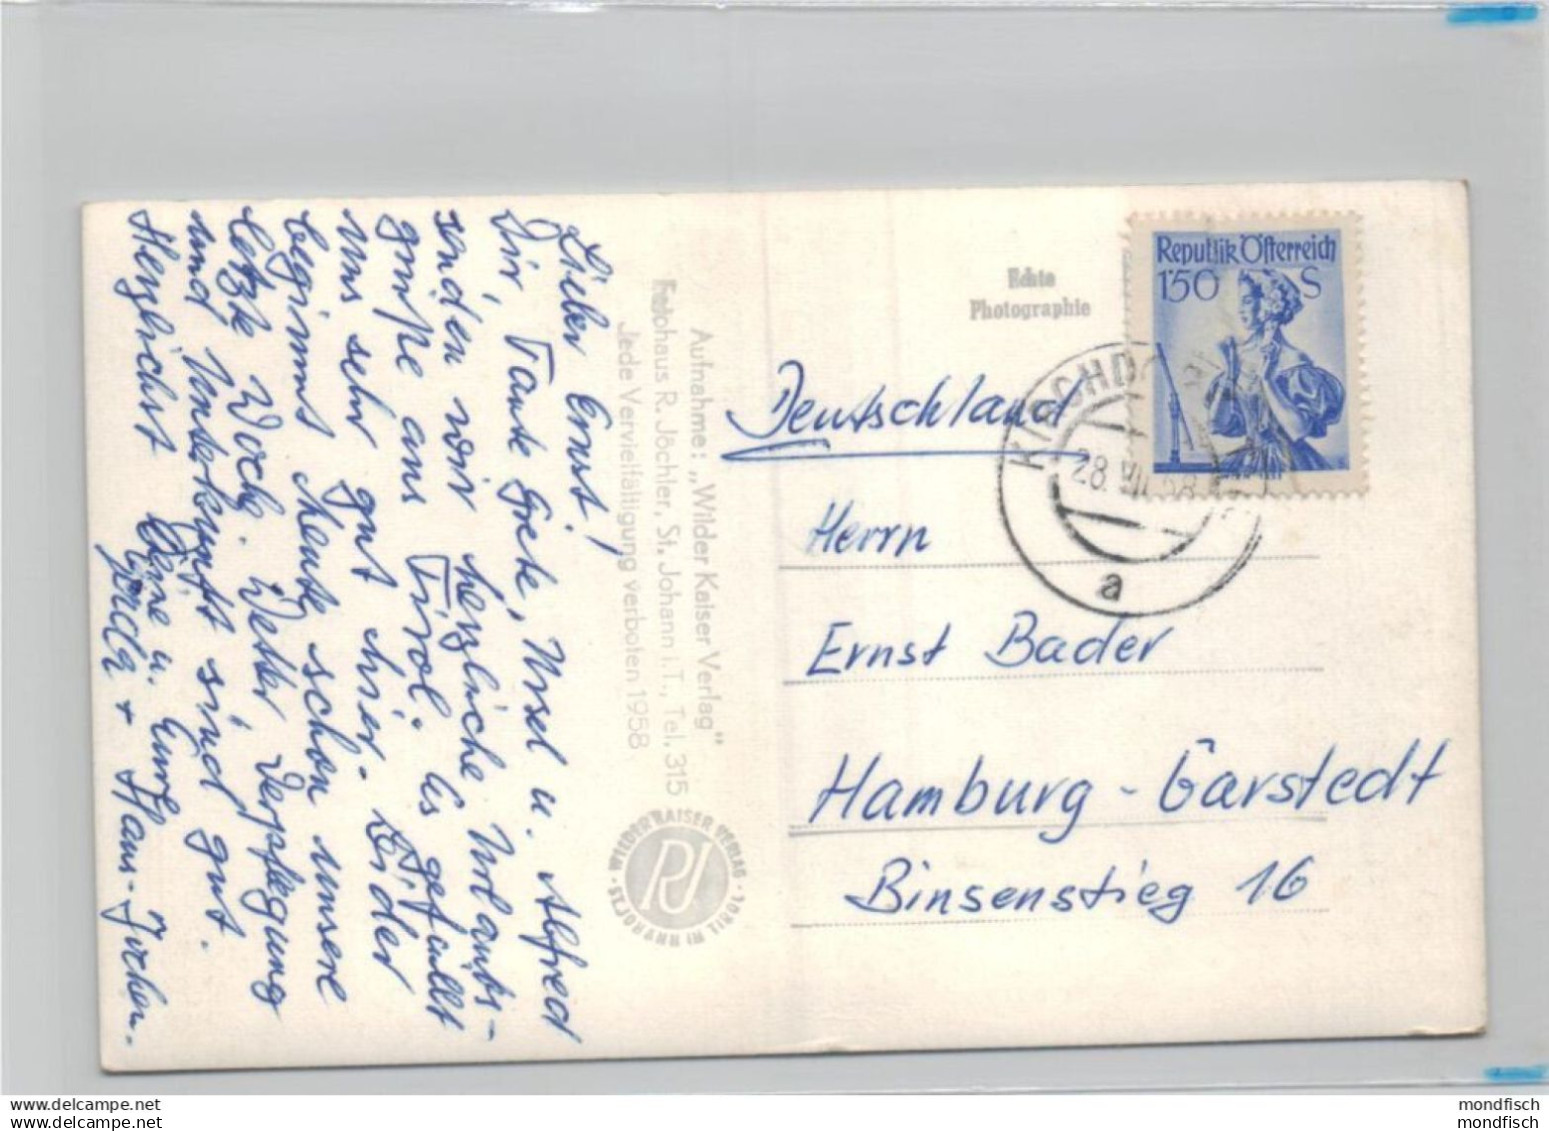 Lieber Ernst!
Dir, Tante Grete, Ursel u. Alfred
senden wir herzliche Urlaubs-
grüße aus Tirol. Es gefällt
uns sehr gut hier. Leider
beginnt heute schon unsere
letzte Woche. Wetter, Verpflegung
und Unterkunft sind gut.
Herzlichst u. Eure
+ Hans-Jochen.
Aufnahme: „Wilder Kaiser Verlag"
Fotohaus R. Jöchler, St. Johann i. T., Tel. 315
Jede Vervielfältigung verboten 1958
WILDER KAISER VERLAG · ST.JOHANN IN TIROL ·
RJ
Echte
Photographie
Republik Österreich
1'50 S
KIRCHDO
28. VII. 58
a
Deutschland
Herrn
Ernst Bader
Hamburg - Garstedt
Binsenstieg 16
delcampe.net
delcampe.net
mondfisch
mondfisch